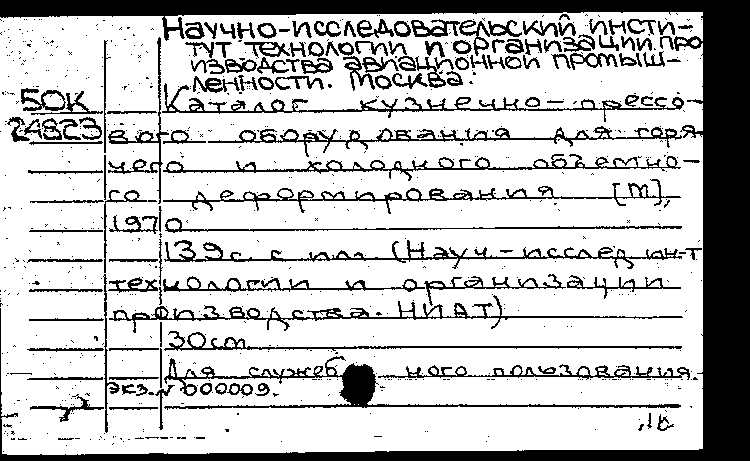 Научно-исследовательский инсти-
тут технологии и организации про
изводства авиационной промыш-
ленности. Москва.
50К
24823
Каталог кузнечно-прессо-
вого оборудования для горя-
чего и холодного объемно-
го деформирования [М],
1970
139с. с илл. (Науч-исслед ин-т
технологии и организации
производства. НИАТ).
30см
Для служеб ного пользования.
экз.№ 000009.